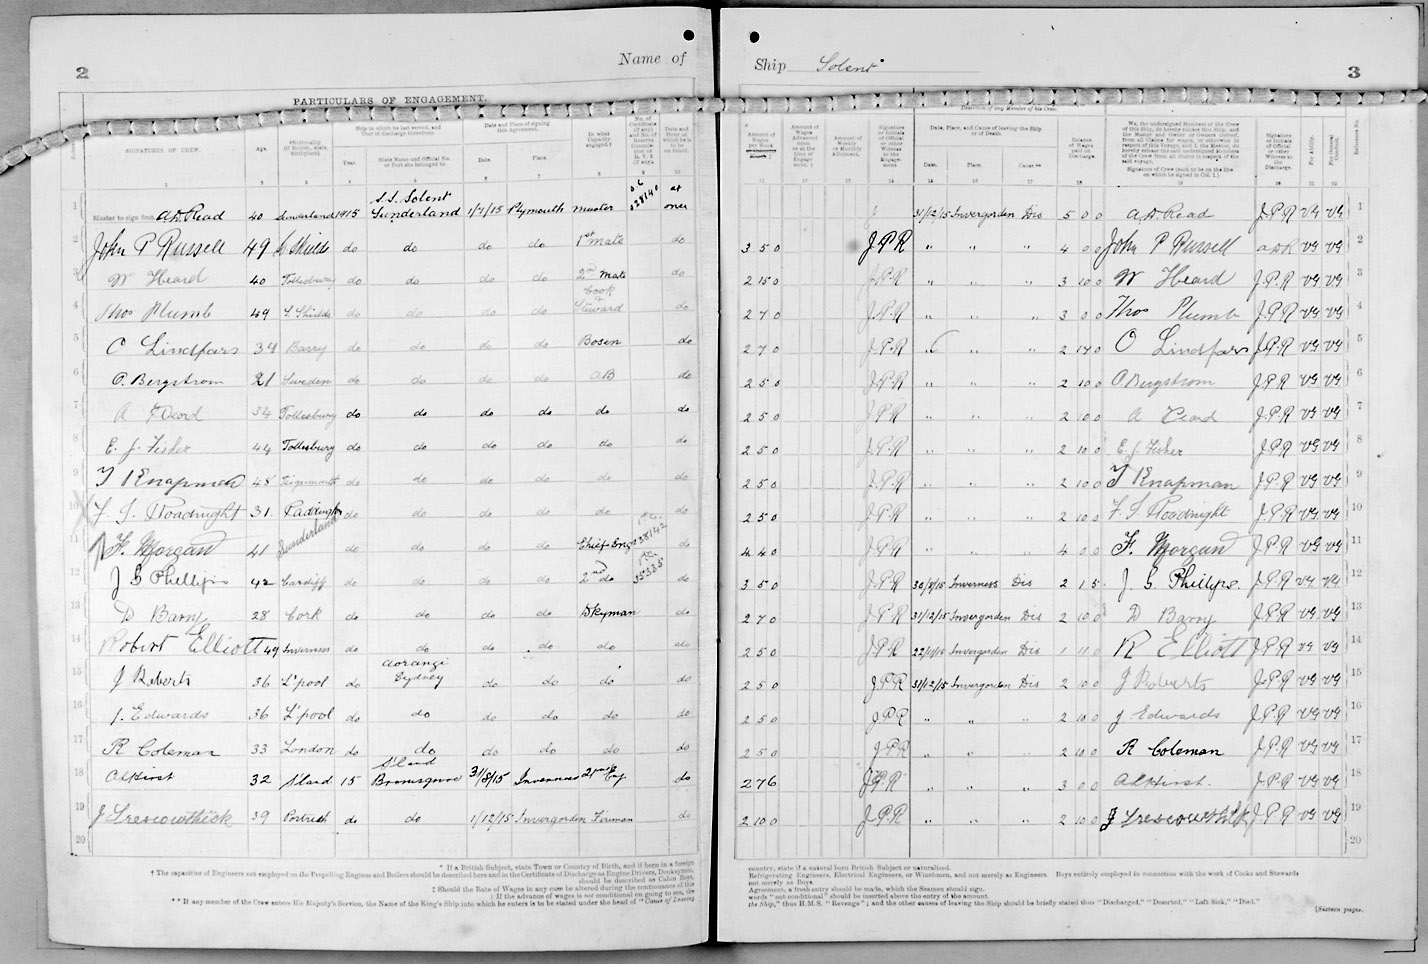 2 Name of
Ship Solent 3
PARTICULARS OF ENGAGEMENT.
SIGNATURES OF CREW.
Age.
Ship in which he last served, and Year of discharge therefrom.
Year.
State Name and Official No. or Port she belonged to.
Date and Place of signing this Agreement.
Date.
Place.
In what Capacity engaged.†
Date, Place, and Cause of leaving the Ship or of Death.
Date.
Place.
Cause.**
Balance of Wages paid on Discharge.
For Ability.
For General Conduct.
Reference No.
1 Master to sign first. A D Read 40 Sunderland 1915 S.S. Solent Sunderland 1/7/15 Plymouth Master at once 31/12/15 Invergordon Dis 5 0 0 A D Read J.P.R VG VG 1
2 John P Russell 49 S Shields do do do do 1st mate do 3 5 0 JPR " " " 4 0 0 John P Russell A D R VG VG 2
3 W Heard 40 Tollesbury do do do do 2nd Mate do 2 15 0 J.P.R " " " 3 10 0 W Heard J.P.R VG VG 3
4 Thos Plumb 49 S. Shields do do do do Cook & Steward do 2 7 0 J.P.R " " " 3 0 0 Thos Plumb J.P.R VG VG 4
5 O Lindfars 34 Barry do do do do Bosen do 2 7 0 J.P.R " " " 2 17 0 O Lindfars J.P.R VG VG 5
6 O. Bergstrom 21 Sweden do do do do AB do 2 5 0 J.P.R " " " 2 10 0 O Bergstrom J.P.R VG VG 6
7 A Heard 34 Tollesbury do do do do do do 2 5 0 JPR " " " 2 10 0 A Heard J.P.R VG VG 7
8 E. J. Fisher 44 Tollesbury do do do do do do 2 5 0 J.P.R " " " 2 10 0 E J Fisher J.P.R VG VG 8
9 T Knapman 48 Teignmouth do do do do do do 2 5 0 J.P.R " " " 2 10 0 T Knapman J.P.R VG VG 9
10 F. S. Roadnight 31 Paddington do do do do do do 2 5 0 J.P.R " " " 2 10 0 F. S Roadnight J.P.R VG VG 10
11 F. Morgan 41 Sunderland do do do do Chief Eng 38142 do 4 4 0 JPR " " " 4 0 0 F. Morgan J.P.R VG VG 11
12 J G Phillips 42 Cardiff do do do do 2nd do 35335 do 3 5 0 J.P.R 30/8/15 Inverness Dis 2 1 5 J. G. Phillips. J.P.R VG VG 12
13 D Barry 28 Cork do do do do Dkyman do 2 7 0 J.P.R 31/12/15 Invergordon Dis 2 10 0 D Barry J.P.R VG VG 13
14 Robert Elliott 49 Inverness do do do do do do 2 5 0 J.P.R 22/11/15 Invergordon Dis 1 11 0 R Elliott J.P.R VG VG 14
15 J Roberts 36 L'pool do Aorangi Sydney do do do do 2 5 0 J.P.R 31/12/15 Invergordon Dis 2 10 0 J Roberts J.P.R VG VG 15
16 J. Edwards 36 L'pool do do do do do do 2 5 0 JPR " " " 2 10 0 J Edwards J.P.R VG VG 16
17 R Coleman 33 London do do do do do do 2 5 0 JPR " " " 2 10 0 R Coleman J.P.R VG VG 17
18 A Hirst 32 S'land 15 S'land Bromsgrove 31/8/15 Inverness 2nd Eng do 2 7 6 J.P.R " " " 3 0 0 A Hirst. J.P.R VG VG 18
19 J Trescowthick 39 Portreath do do 1/12/15 Invergordon Fireman do 2 10 0 J.P.R " " " 2 10 0 J Trescowthick J.P.R VG VG 19
20 20
* If a British Subject, state Town or Country of Birth, and if born in a foreign
country, state if a natural born British Subject or naturalized.
† The capacities of Engineers not employed on the Propelling Engines and Boilers should be described here and in the Certificate of Discharge as Engine Drivers, Donkeymen,
Refrigerating Engineers, Electrical Engineers, or Winchmen, and not merely as Engineers. Boys entirely employed in connection with the work of Cooks and Stewards
should be described as Cabin Boys,
not merely as Boys.
‡ Should the Rate of Wages in any case be altered during the continuance of this
Agreement, a fresh entry should be made, which the Seamen should sign.
‖ If the advance of wages is not conditional on going to sea, the
words "not conditional" should be inserted above the entry of the amount.
** If any member of the Crew enters His Majesty's Service, the Name of the King's Ship into which he enters is to be stated under the head of "Cause of Leaving
the Ship," thus H.M.S. "Revenge"; and the other causes of leaving the Ship should be briefly stated thus "Discharged," "Deserted," "Left Sick," "Died."
(Sixteen pages.